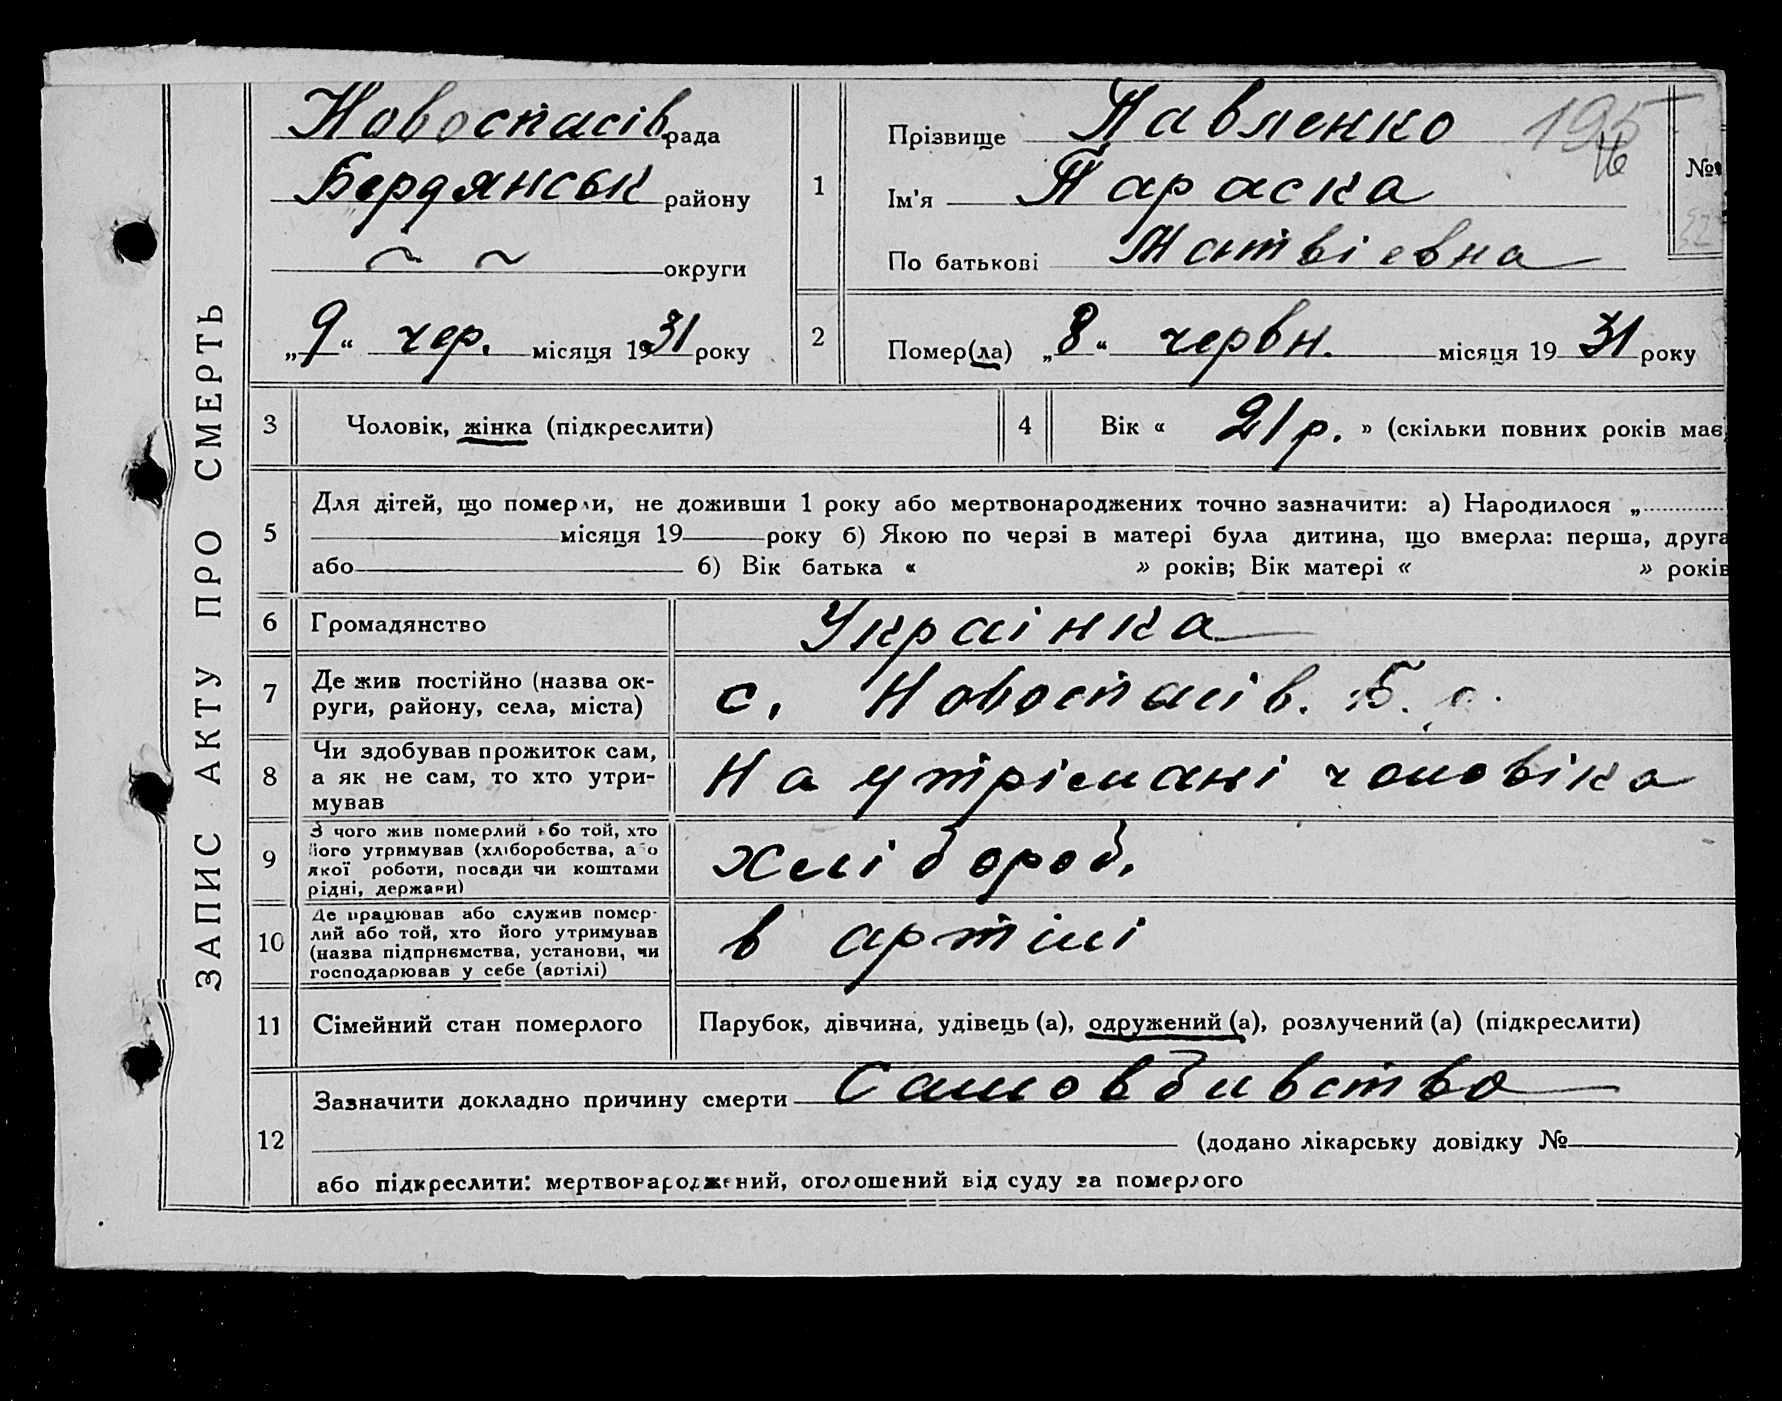 ЗАПИС АКТУ ПРО СМЕРТЬ
Новоспасів рада
Бердянськ району
~ ~ округи
„9“ чер. місяця 1931 року
1
Прізвище Павленко
Ім'я Параска
По батькові Матвієвна
195
16
№
2
Помер(ла) „8“ червн. місяця 1931 року
3 Чоловік, жінка (підкреслити)
4 Вік « 21 р. » (скільки повних років має
5
Для дітей, що померли, не доживши 1 року або мертвонароджених точно зазначити: а) Народилося „
місяця 19 року б) Якою по черзі в матері була дитина, що вмерла: перша, друга
або б) Вік батька « » років; Вік матері « » років
6 Громадянство Украінка
7 Де жив постійно (назва ок-
руги, району, села, міста)
с. Новоспасів. Б. р.
8 Чи здобував прожиток сам,
а як не сам, то хто утри-
мував
На утрімані чоловіка
9 З чого жив померлий або той, хто
його утримував (хліборобства, або
якої роботи, посади чи коштами
рідні, держави)
хлібороб.
10 Де працював або служив помер-
лий або той, хто його утримував
(назва підприємства, установи, чи
господарював у себе (артілі)
в артілі
11 Сімейний стан померлого Парубок, дівчина, удівець (а), одружений (а), розлучений (а) (підкреслити)
12
Зазначити докладно причину смерти Самовбивство
(додано лікарську довідку № )
або підкреслити: мертвонароджений, оголошений від суду за померлого